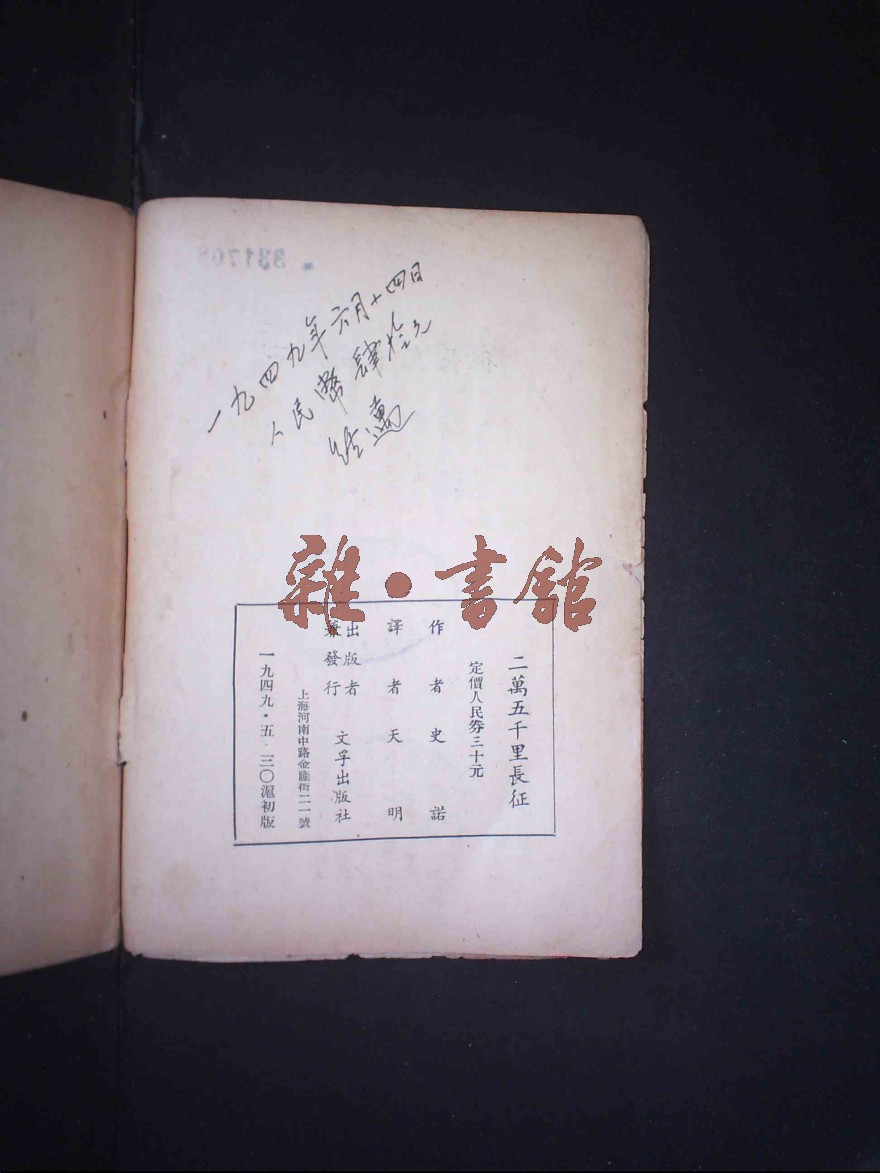 331768
一九四九年六月十四日
人民幣肆拾元
雜·書館
二萬五千里長征
定價人民券三十元
作者史諾
譯者天明
出版者
兼發行
文孚出版社
上海河南中路金隆街二一號
一九四九·五·三〇滬初版